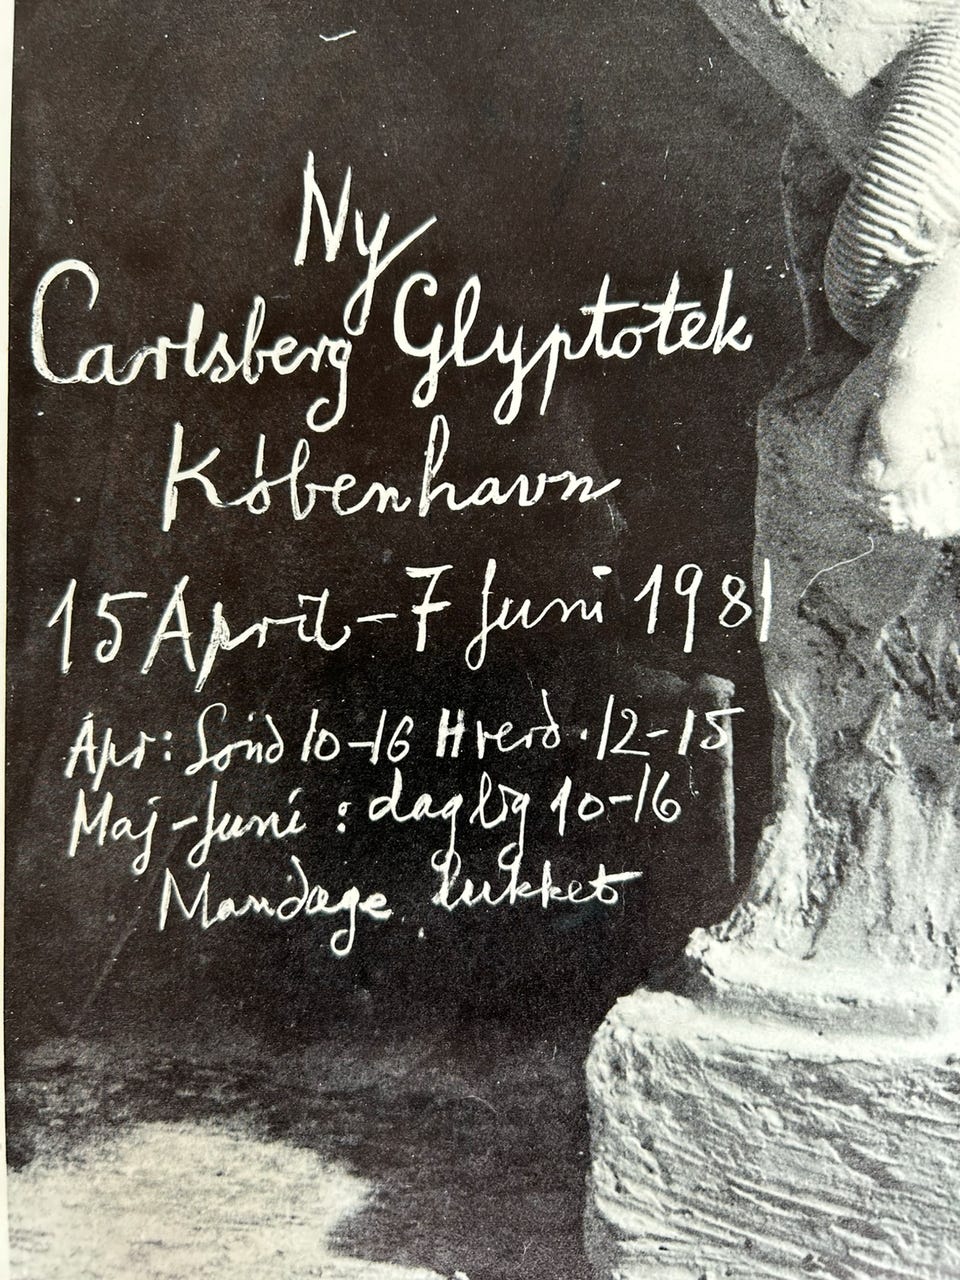 Ny
Carlsberg Glyptotek
København
15 April - 7 Juni 1981
Apr: Sønd 10-16 Hverd. 12-15
Maj - Juni : daglig 10-16
Mandage lukket